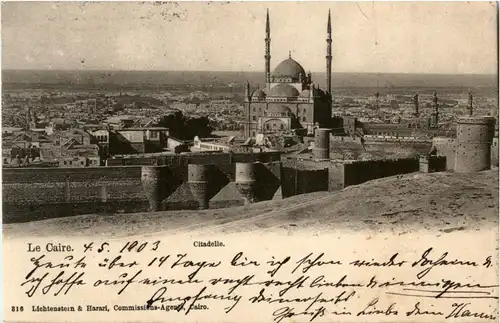 Le Caire. 4. 5. 1903 Citadelle.
Heute über 14 Tage bin ich schon wieder daheim &
ich hoffe auf einen recht recht lieben &
Empfang deinerseits!
816 Lichtenstern & Harari, Commissions-Agents, Cairo.
Gruß in Liebe dein